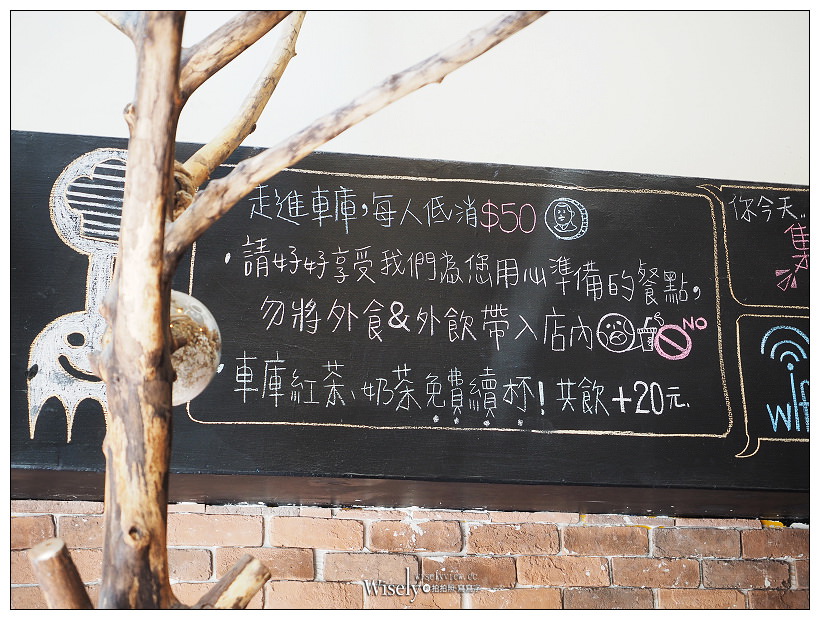 走進車庫,每人低消$50
·請好好享受我們為您用心準備的餐點,
勿將外食&外飲帶入店內
NO
·車庫紅茶、奶茶免費續杯!共飲+20元.
你今天..
wifi
Wisely